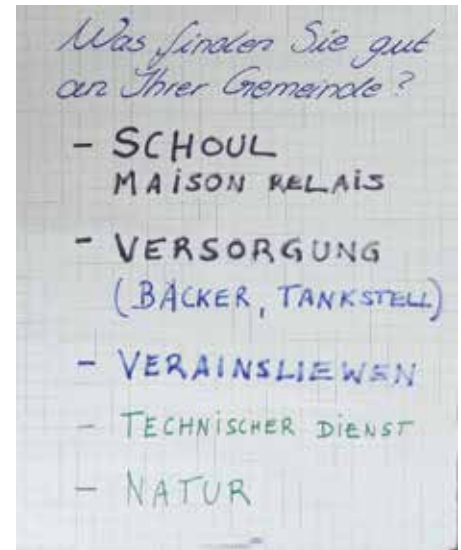 Was finden Sie gut
an Ihrer Gemeinde?
- SCHOUL
MAISON RELAIS
- VERSORGUNG
(BÄCKER, TANKSTELL)
- VERAINSLIEWEN
- TECHNISCHER DIENST
- NATUR